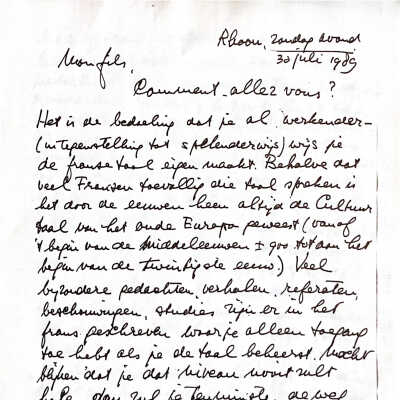 Rhoon, zondag avond
30 juli 1989
Mon fils,
Comment allez vous?
Het is de bedoeling dat je al werkender-
(in tegenstelling tot spelenderwijs) wijs je
de franse taal eigen maakt. Behalve dat
veel Fransen toevallig die taal spreken is
het door de eeuwen heen altijd de Cultuur
taal van het oude Europa geweest (vanaf
't begin van de Middeleeuwen ± 900 tot aan het
begin van de twintigste eeuw.) Veel
bijzondere gedachten, verhalen, referaten,
beschouwingen, studies zijn er in het
frans geschreven waar je alleen toegang
toe hebt als je de taal beheerst. Mocht
blijken dat je dat niveau nooit zult
dan zul je tenminste de weg